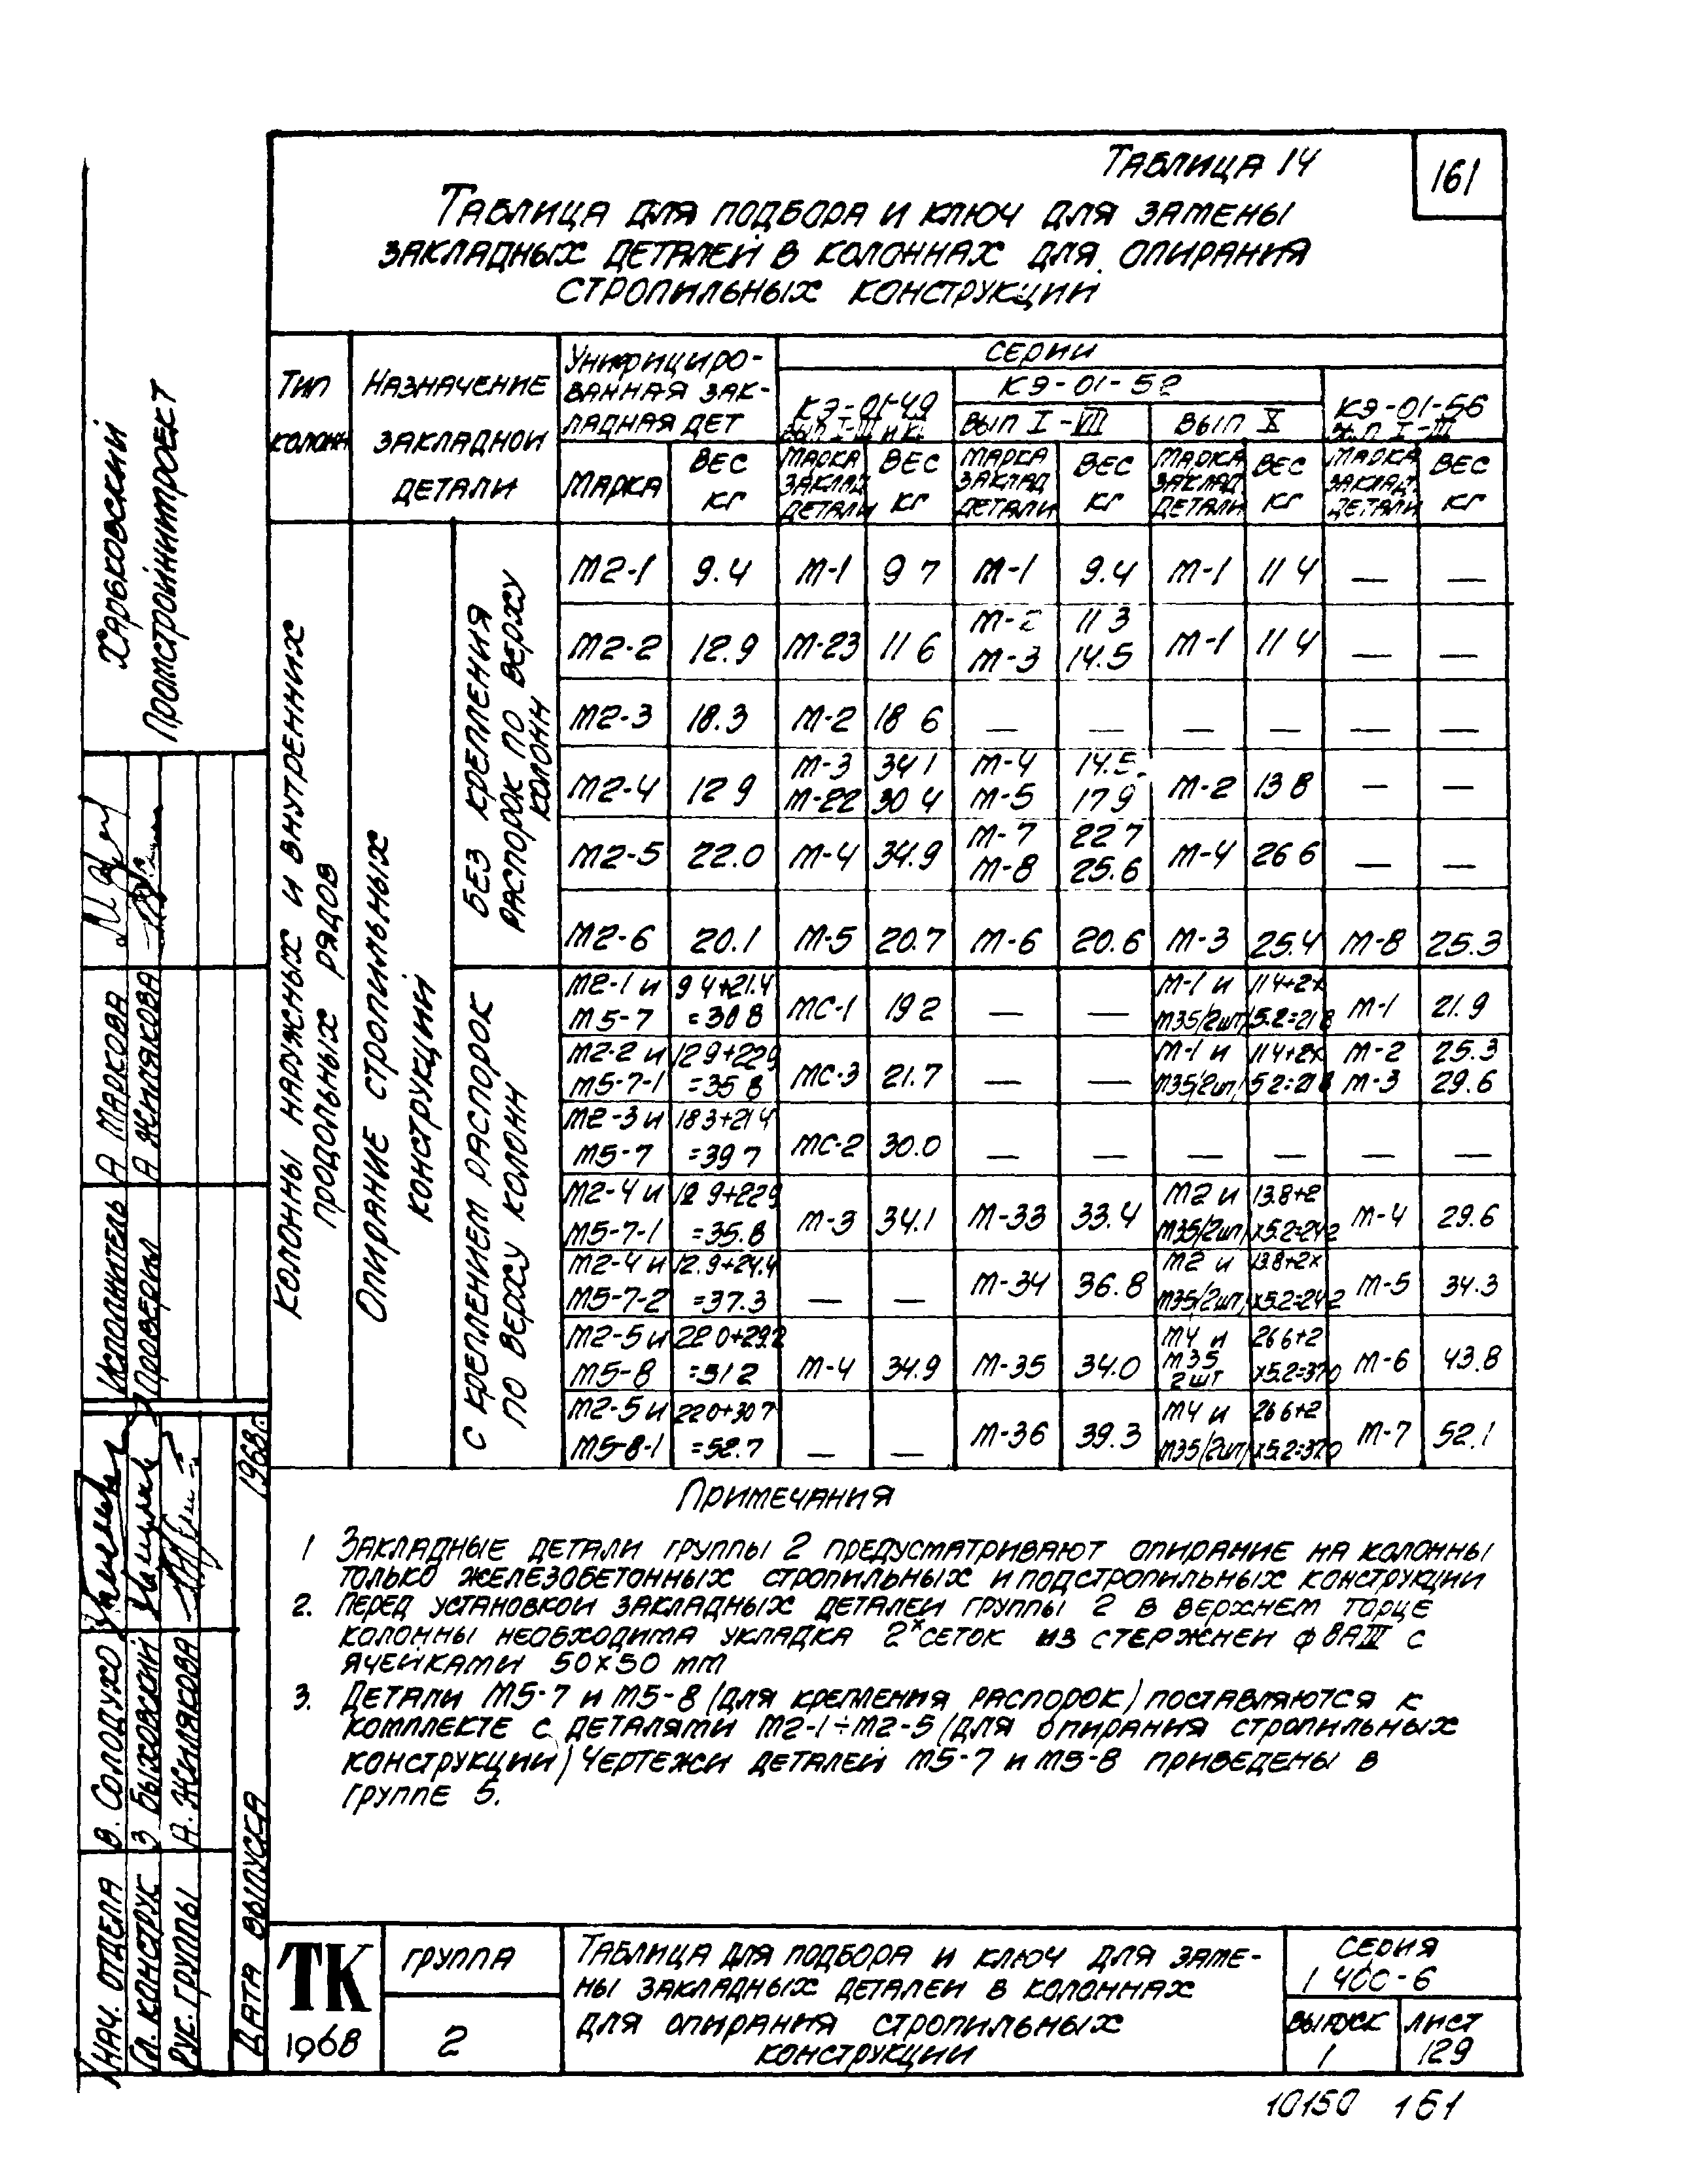 Таблица 14
161
Таблица для подбора и ключ для замены
закладных деталей в колоннах для опирания
стропильных конструкций
Тип
колонн
Назначение
закладной
детали
Унифициро-
ванная зак-
ладная дет
Марка
вес
кг
серии
КЭ-01-49
КЭ-01-52
вып I-VII
вып X
КЭ-01-56
вып I-III
марка
заклад
детали
вес
кг
марка
заклад
детали
вес
кг
марка
заклад
детали
вес
кг
марка
заклад.
детали
вес
кг
Колонны наружных и внутренних
продольных рядов
Опирание стропильных
конструкций
Без крепления
распорок по верху
колонн
М2-1 9.4 М-1 9 7 М-1 9.4 М-1 11 4 — —
М2-2 12.9 М-23 11 6 М-2 11 3 М-1 11 4 — —
М-3 14.5
М2-3 18.3 М-2 18 6 — — — — — —
М2-4 12 9 М-3 34 1 М-4 14.5 М-2 13 8 — —
М-22 30 4 М-5 17 9
М2-5 22.0 М-4 34.9 М-7 22 7 М-4 26 6 — —
М-8 25.6
М2-6 20.1 М-5 20.7 М-6 20.6 М-3 25.4 М-8 25.3
С креплением распорок
по верху колонн
М2-1 и 9 4+21.4 МС-1 19 2 — — М-1 и 11 4+2х М-1 21.9
М5-7 =30 8 М35/2шт/ 5.2=21 8
М2-2 и 12 9+22 9 МС-3 21.7 — — М-1 и 11 4+2х М-2 25.3
М5-7-1 =35 8 М35/2шт/ 5 2=21 8 М-3 29.6
М2-3 и 18 3+21 4 МС-2 30.0 — — — — — —
М5-7 =39 7
М2-4 и 12 9+22 9 М-3 34.1 М-33 33.4 М2 и 13.8+2 М-4 29.6
М5-7-1 =35.8 М35/2шт/ х5.2=24 2
М2-4 и 12.9+24.4 — — М-34 36.8 М2 и 13.8+2х М-5 34.3
М5-7-2 =37.3 М35/2шт/ х5.2=24 2
М2-5 и 22 0+29.2 М-4 34.9 М-35 34.0 М4 и 26 6+2 М-6 43.8
М5-8 =51 2 М35 2 шт х5.2=37 0
М2-5 и 22 0+30 7 — — М-36 39.3 М4 и 26 6+2 М-7 52.1
М5-8-1 =52.7 М35/2шт/ х5.2=37 0
Примечания
1 Закладные детали группы 2 предусматривают опирание на колонны
только железобетонных стропильных и подстропильных конструкции
2. Перед установкои закладных деталеи группы 2 в верхнем торце
колонны необходима укладка 2х сеток из стержнеи ф 8АIII с
ячейками 50×50 mm
3. Детали М5-7 и М5-8 (для крепления распорок) поставляются к
комплекте с деталями М2-1÷М2-5 (для опирания стропильных
конструкций) Чертежи деталей М5-7 и М5-8 приведены в
группе 5.
ТК
1968
группа
2
Таблица для подбора и ключ для заме-
ны закладных деталеи в колоннах
для опирания стропильных
конструкции
серия
1 400-6
выпуск
1
лист
129
10150 161
Харьковский
Промстройниипроект
Исполнитель А Маркова
Проверил А Жилякова
Нач. отдела В. Солодухо
Гл. конструк З Быховский
Рук. группы А. Жилякова
Дата выпуска 1968г.